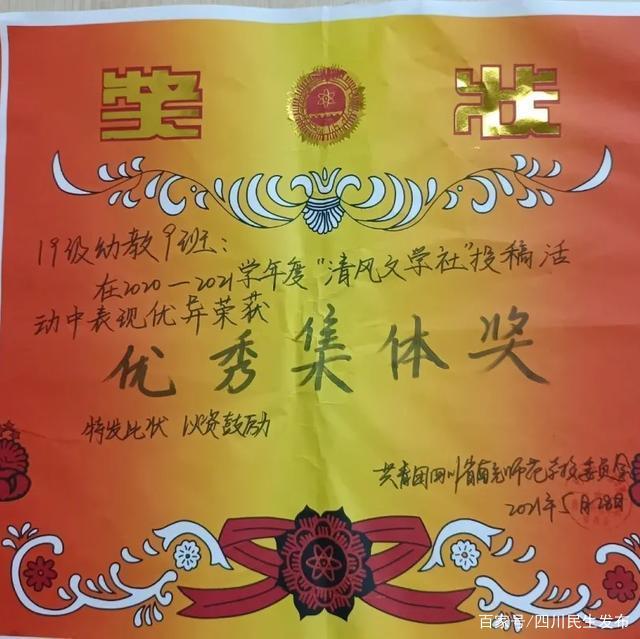 奖状
19级幼教9班：
在2020—2021学年度"清风文学社"投稿活
动中表现优异荣获
优秀集体奖
特发比状 以资鼓励
共青团四川省南充师范学校委员会
2021年5月28日
百家号/四川民生发布